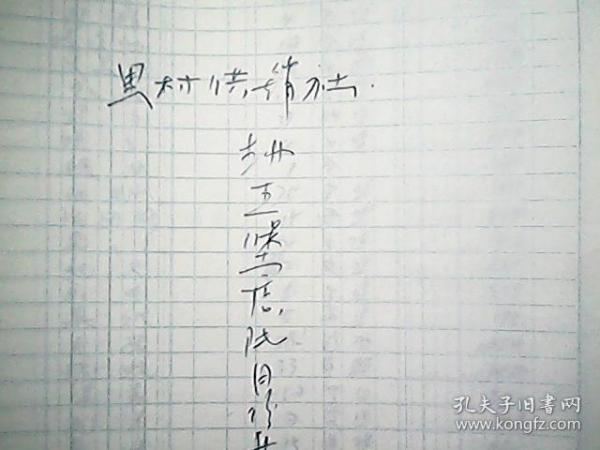 村供销社.
五堡店,月份
孔夫子旧书网
www.kongfz.com